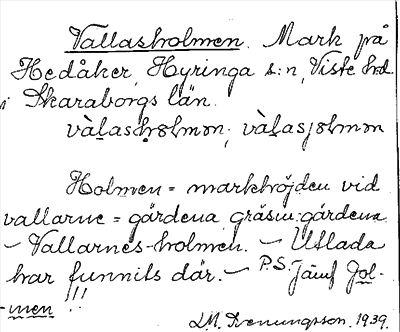 Vallasholmen. Mark på
Hedåker, Hyringa s:n, Viste hd.
i Skaraborgs län.
vàḷasḥolmən; vàḷasjolmən
Holmen = markhöjden vid
vallarne = gärdena, gräsin.gärdena
- Vallarnes-holmen. - Utlada
har funnits där. - P.S. Jämf Jol-
-men !!
1939.